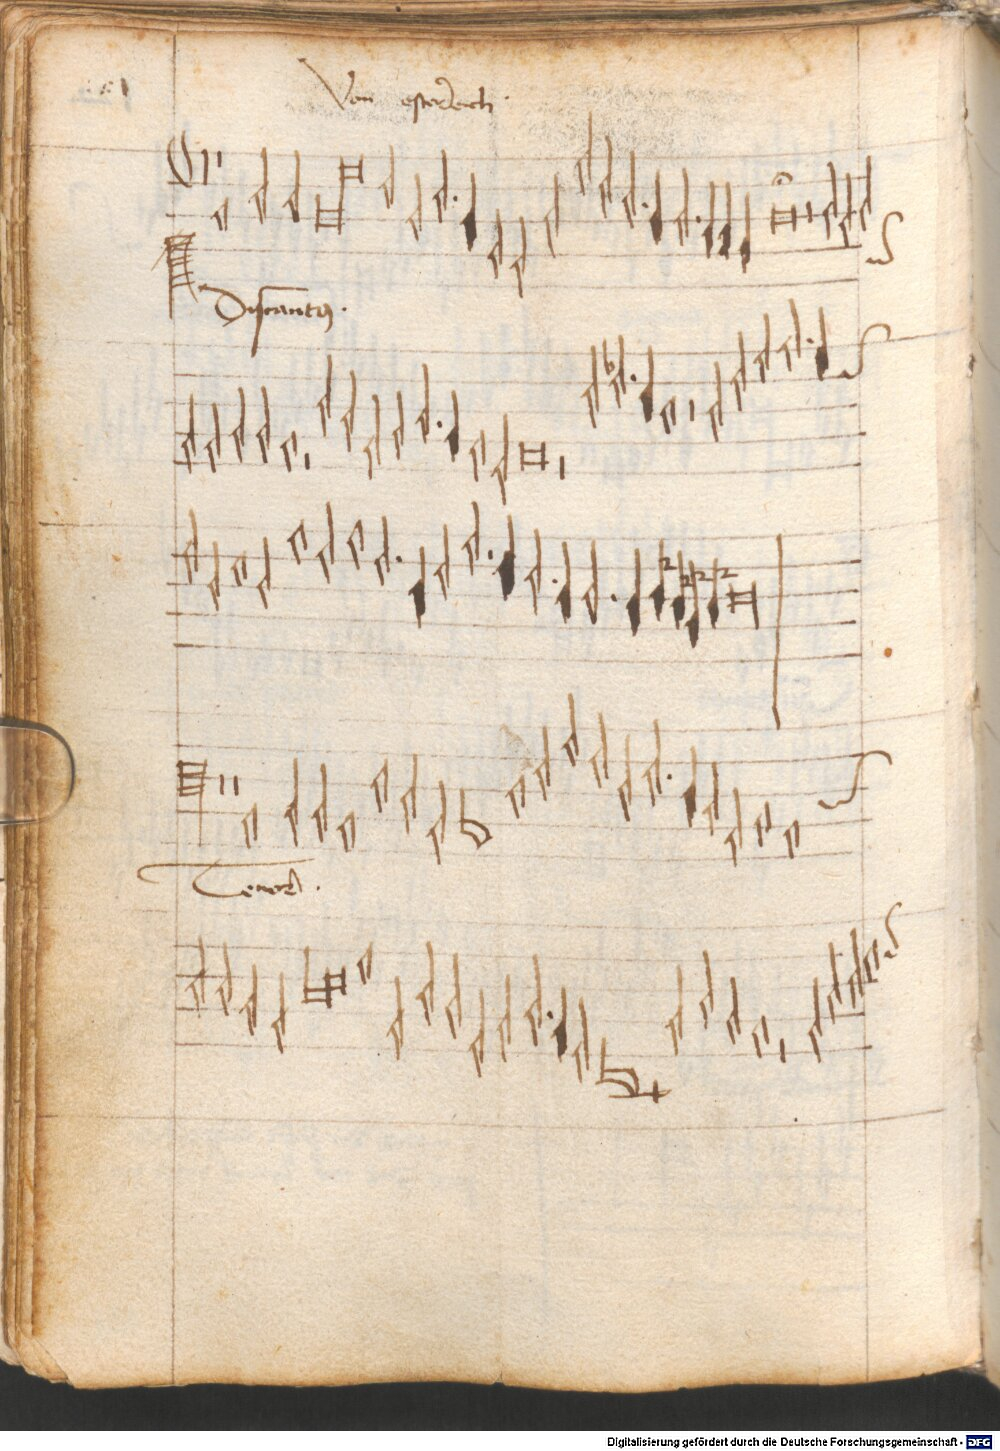 Von osterreich.
Discantus.
Tenor.
Digitalisierung gefördert durch die Deutsche Forschungsgemeinschaft - DFG